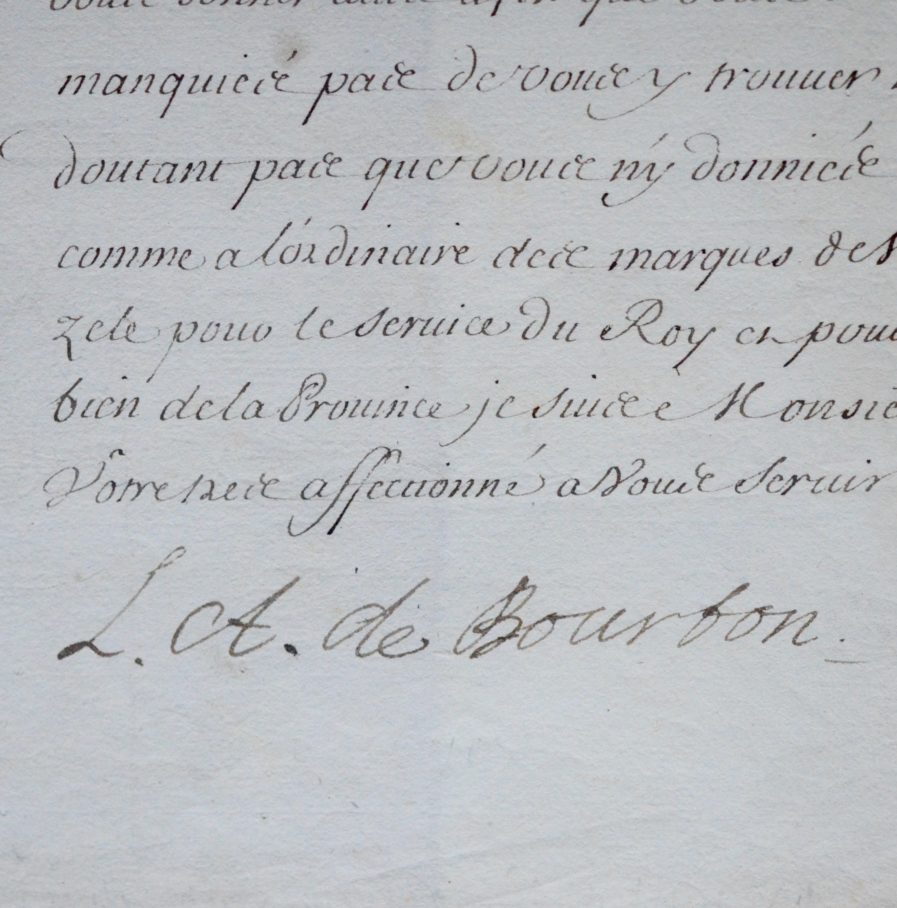 manquiés pas de vous y trouuer
doutant pas que vous n'y donniés
comme a l'ordinaire des marques de
zele pour le seruice du Roy et pour
bien de la Prouince je suis Monsie
Vôtre tres affectionné a Vous seruir
L. A. de Bourbon.